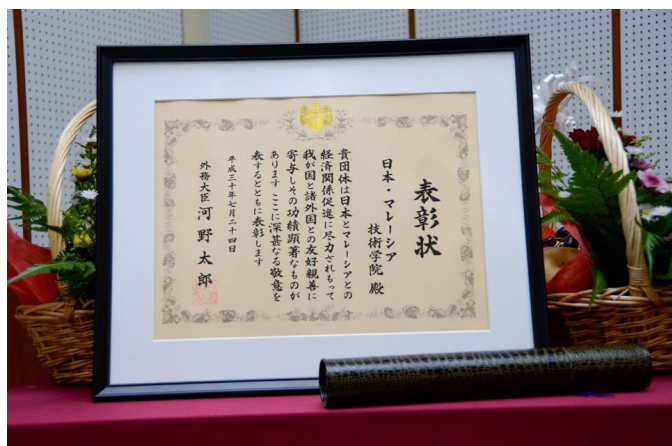 表彰状
日本・マレーシア
技術学院 殿
貴団体は日本とマレーシアとの
経済関係促進に尽力されもって
我が国と諸外国との友好親善に
寄与しその功績顕著なものが
あります ここに深甚なる敬意を
表するとともに表彰します
平成三十年七月二十四日
外務大臣 河野太郎